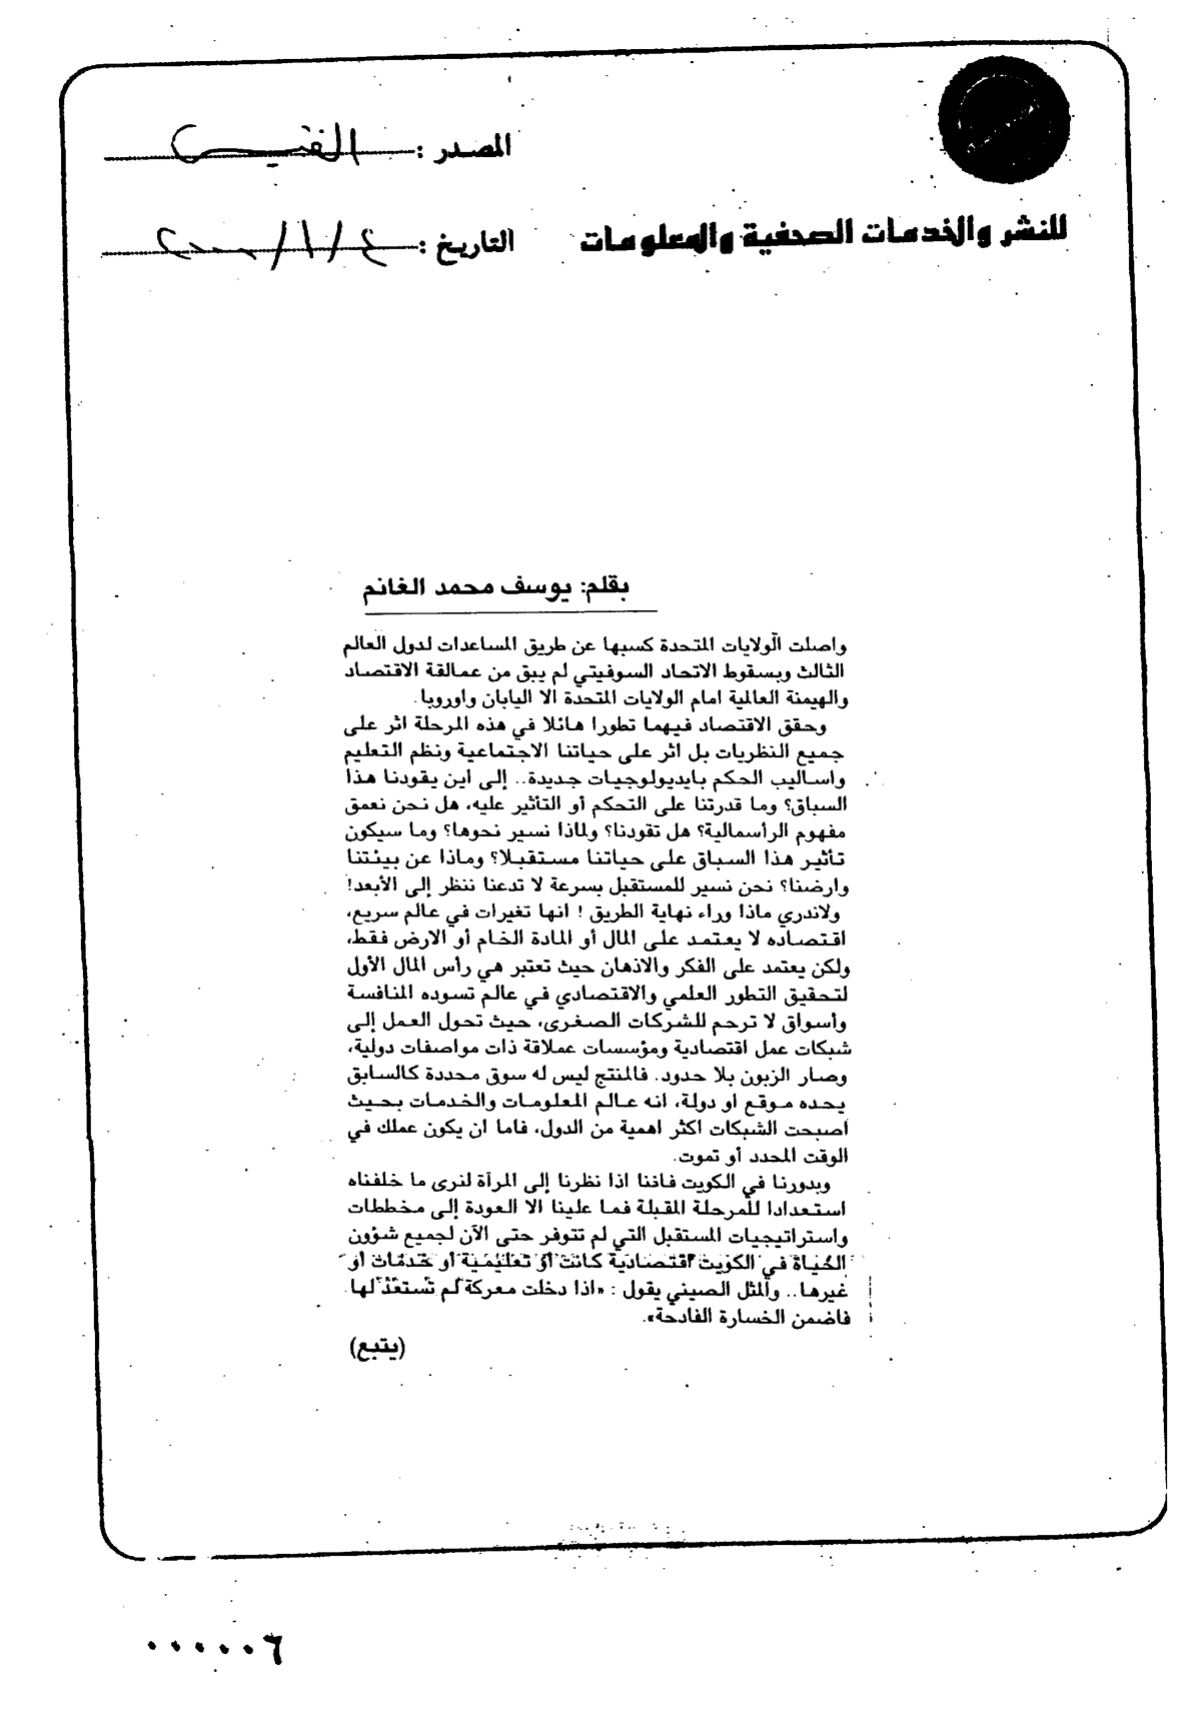 المصدر : القبس
للنشر والخدمات الصحفية والمعلومات
التاريخ : ٤/١/٢٠٠٠
بقلم: يوسف محمد الغانم
واصلت الولايات المتحدة كسبها عن طريق المساعدات لدول العالم
الثالث وبسقوط الاتحاد السوفيتي لم يبق من عمالقة الاقتصاد
والهيمنة العالمية امام الولايات المتحدة الا اليابان وأوروبا.
وحقق الاقتصاد فيهما تطورا هائلا في هذه المرحلة اثر على
جميع النظريات بل اثر على حياتنا الاجتماعية ونظم التعليم
واساليب الحكم بايديولوجيات جديدة.. إلى اين يقودنا هذا
السباق؟ وما قدرتنا على التحكم أو التأثير عليه، هل نحن نعمق
مفهوم الرأسمالية؟ هل تقودنا؟ ولماذا نسير نحوها؟ وما سيكون
تأثير هذا السباق على حياتنا مستقبلا؟ وماذا عن بيئتنا
وارضنا؟ نحن نسير للمستقبل بسرعة لا تدعنا ننظر إلى الأبعد!
ولاندري ماذا وراء نهاية الطريق ! انها تغيرات في عالم سريع،
اقتصاده لا يعتمد على المال أو المادة الخام أو الارض فقط،
ولكن يعتمد على الفكر والاذهان حيث تعتبر هي رأس المال الأول
لتحقيق التطور العلمي والاقتصادي في عالم تسوده المنافسة
وأسواق لا ترحم للشركات الصغرى، حيث تحول العمل إلى
شبكات عمل اقتصادية ومؤسسات عملاقة ذات مواصفات دولية،
وصار الزبون بلا حدود. فالمنتج ليس له سوق محددة كالسابق
يحده موقع او دولة، انه عالم المعلومات والخدمات بحيث
اصبحت الشبكات اكثر اهمية من الدول، فاما ان يكون عملك في
الوقت المحدد أو تموت.
وبدورنا في الكويت فاننا اذا نظرنا إلى المرآة لنرى ما خلفناه
استعدادا للمرحلة المقبلة فما علينا الا العودة إلى مخططات
واستراتيجيات المستقبل التي لم تتوفر حتى الآن لجميع شؤون
الحياة في الكويت اقتصادية كانت أو تعليمية أو خدمات أو
غيرها.. والمثل الصيني يقول : «اذا دخلت معركة لم تستعد لها
فاضمن الخسارة الفادحة».
(يتبع)
٠٠٠٠٠٦